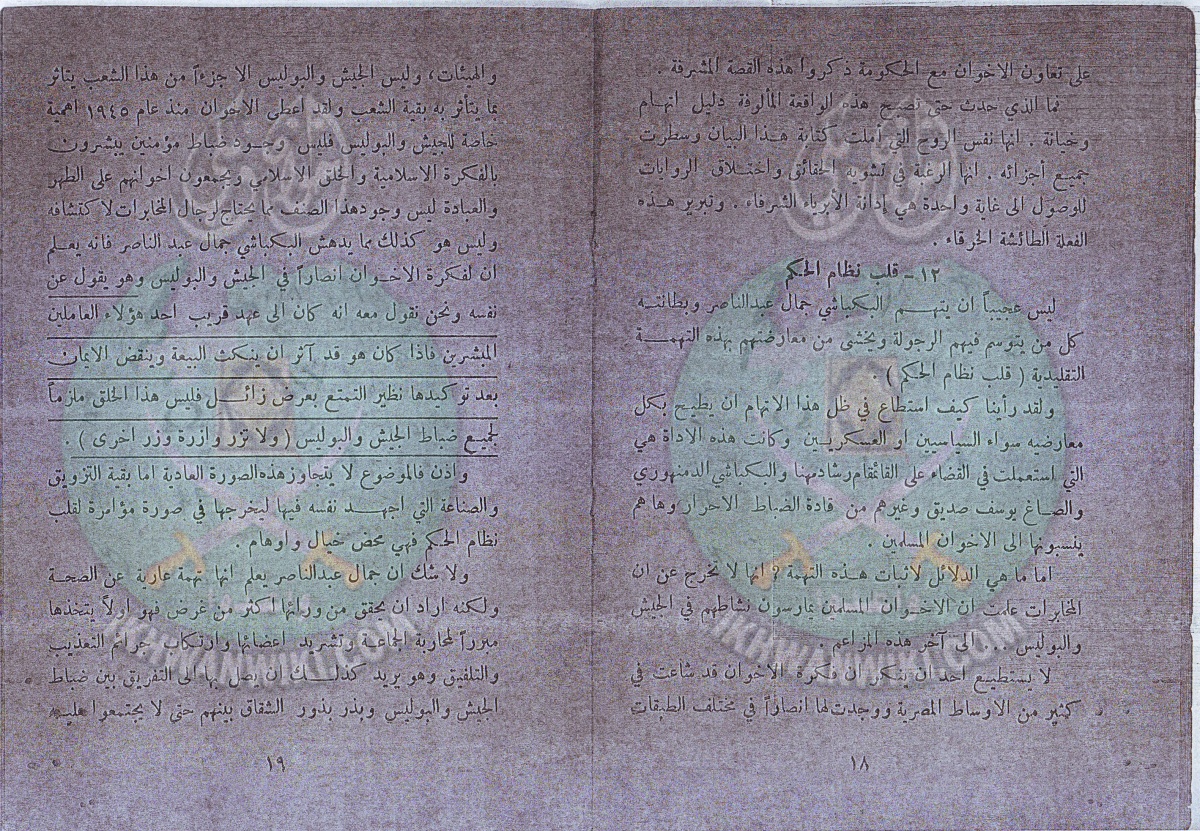 على تعاون الاخوان مع الحكومة ذكروا هذه القصة المشرفة .
فما الذي حدث حتى تصبح هذه الواقعة المألوفة دليل اتهام
وخيانة . انها نفس الروح التي أملت كتابة هذا البيان وسطرت
جميع أجزائه . انها الرغبة في تشويه الحقائق واختلاق الروايات
للوصول الى غاية واحدة هي إدانة الأبرياء الشرفاء . وتبرير هذه
الفعلة الطائشة الخرقاء .
١٢ - قلب نظام الحكم
ليس عجيباً ان يتهم البكباشي جمال عبدالناصر وبطانته
كل من يتوسم فيهم الرجولة ويخشى من معارضتهم بهذه التهمة
التقليدية ( قلب نظام الحكم ) .
ولقد رأينا كيف استطاع في ظل هذا الاتهام ان يطيح بكل
معارضيه سواء السياسيين او العسكريين وكانت هذه الاداة هي
التي استعملت في القضاء على القائمقام رشاد مهنا والبكباشي الدمنهوري
والصاغ يوسف صديق وغيرهم من قادة الضباط الاحرار وها هم
ينسبونها الى الاخوان المسلمين .
اما ما هي الدلائل لاثبات هذه التهمة ? انها لا تخرج عن ان
المخابرات علمت ان الاخوان المسلمين يمارسون نشاطهم في الجيش
والبوليس ... الى آخر هذه المزاعم
لا يستطيع احد ان ينكر ان فكرة الاخوان قد شاعت في
كثير من الاوساط المصرية ووجدت لها انصاراً في مختلف الطبقات
١٨
والهيئات، وليس الجيش والبوليس الا جزءاً من هذا الشعب يتأثر
بما يتأثر به بقية الشعب ولقد اعطى الاخوان منذ عام ١٩٤٥ اهمية
خاصة للجيش والبوليس فليس وجود ضباط مؤمنين يبشرون
بالفكرة الاسلامية والخلق الاسلامي ويجمعون اخوانهم على الطهر
والعبادة ليس وجود هذا الصنف مما يحتاج لرجال المخابرات لاكتشافه
وليس هو كذلك مما يدهش البكباشي جمال عبد الناصر فانه يعلم
ان لفكرة الاخوان انصاراً في الجيش والبوليس وهو يقول عن
نفسه ونحن نقول معه انه كان الى عهد قريب احد هؤلاء العاملين
المبشرين فاذا كان هو قد آثر ان ينكث البيعة وينقض الايمان
بعد توكيدها نظير التمتع بعرض زائل فليس هذا الخلق ملزماً
لجميع ضباط الجيش والبوليس ( ولا تزر وازرة وزر اخرى ) .
واذن فالموضوع لا يتجاوز هذه الصورة العادية اما بقية التزويق
والصناعة التي اجهد نفسه فيها ليخرجها في صورة مؤامرة لقلب
نظام الحكم فهي محض خيال واوهام .
ولا شك ان جمال عبدالناصر يعلم انها تهمة عارية عن الصحة
ولكنه اراد ان يحقق من ورائها اكثر من غرض فهو اولاً يتخذها
مبرراً لمحاربة الجماعة وتشريد اعضائها وارتكاب جرائم التعذيب
والتلفيق وهو يريد كذلك ان يصل بها الى التفريق بين ضباط
الجيش والبوليس وبذر بذور الشقاق بينهم حتى لا يجتمعوا عليه
١٩
IKHWANWIKI.COM
IKHWANWIKI.COM